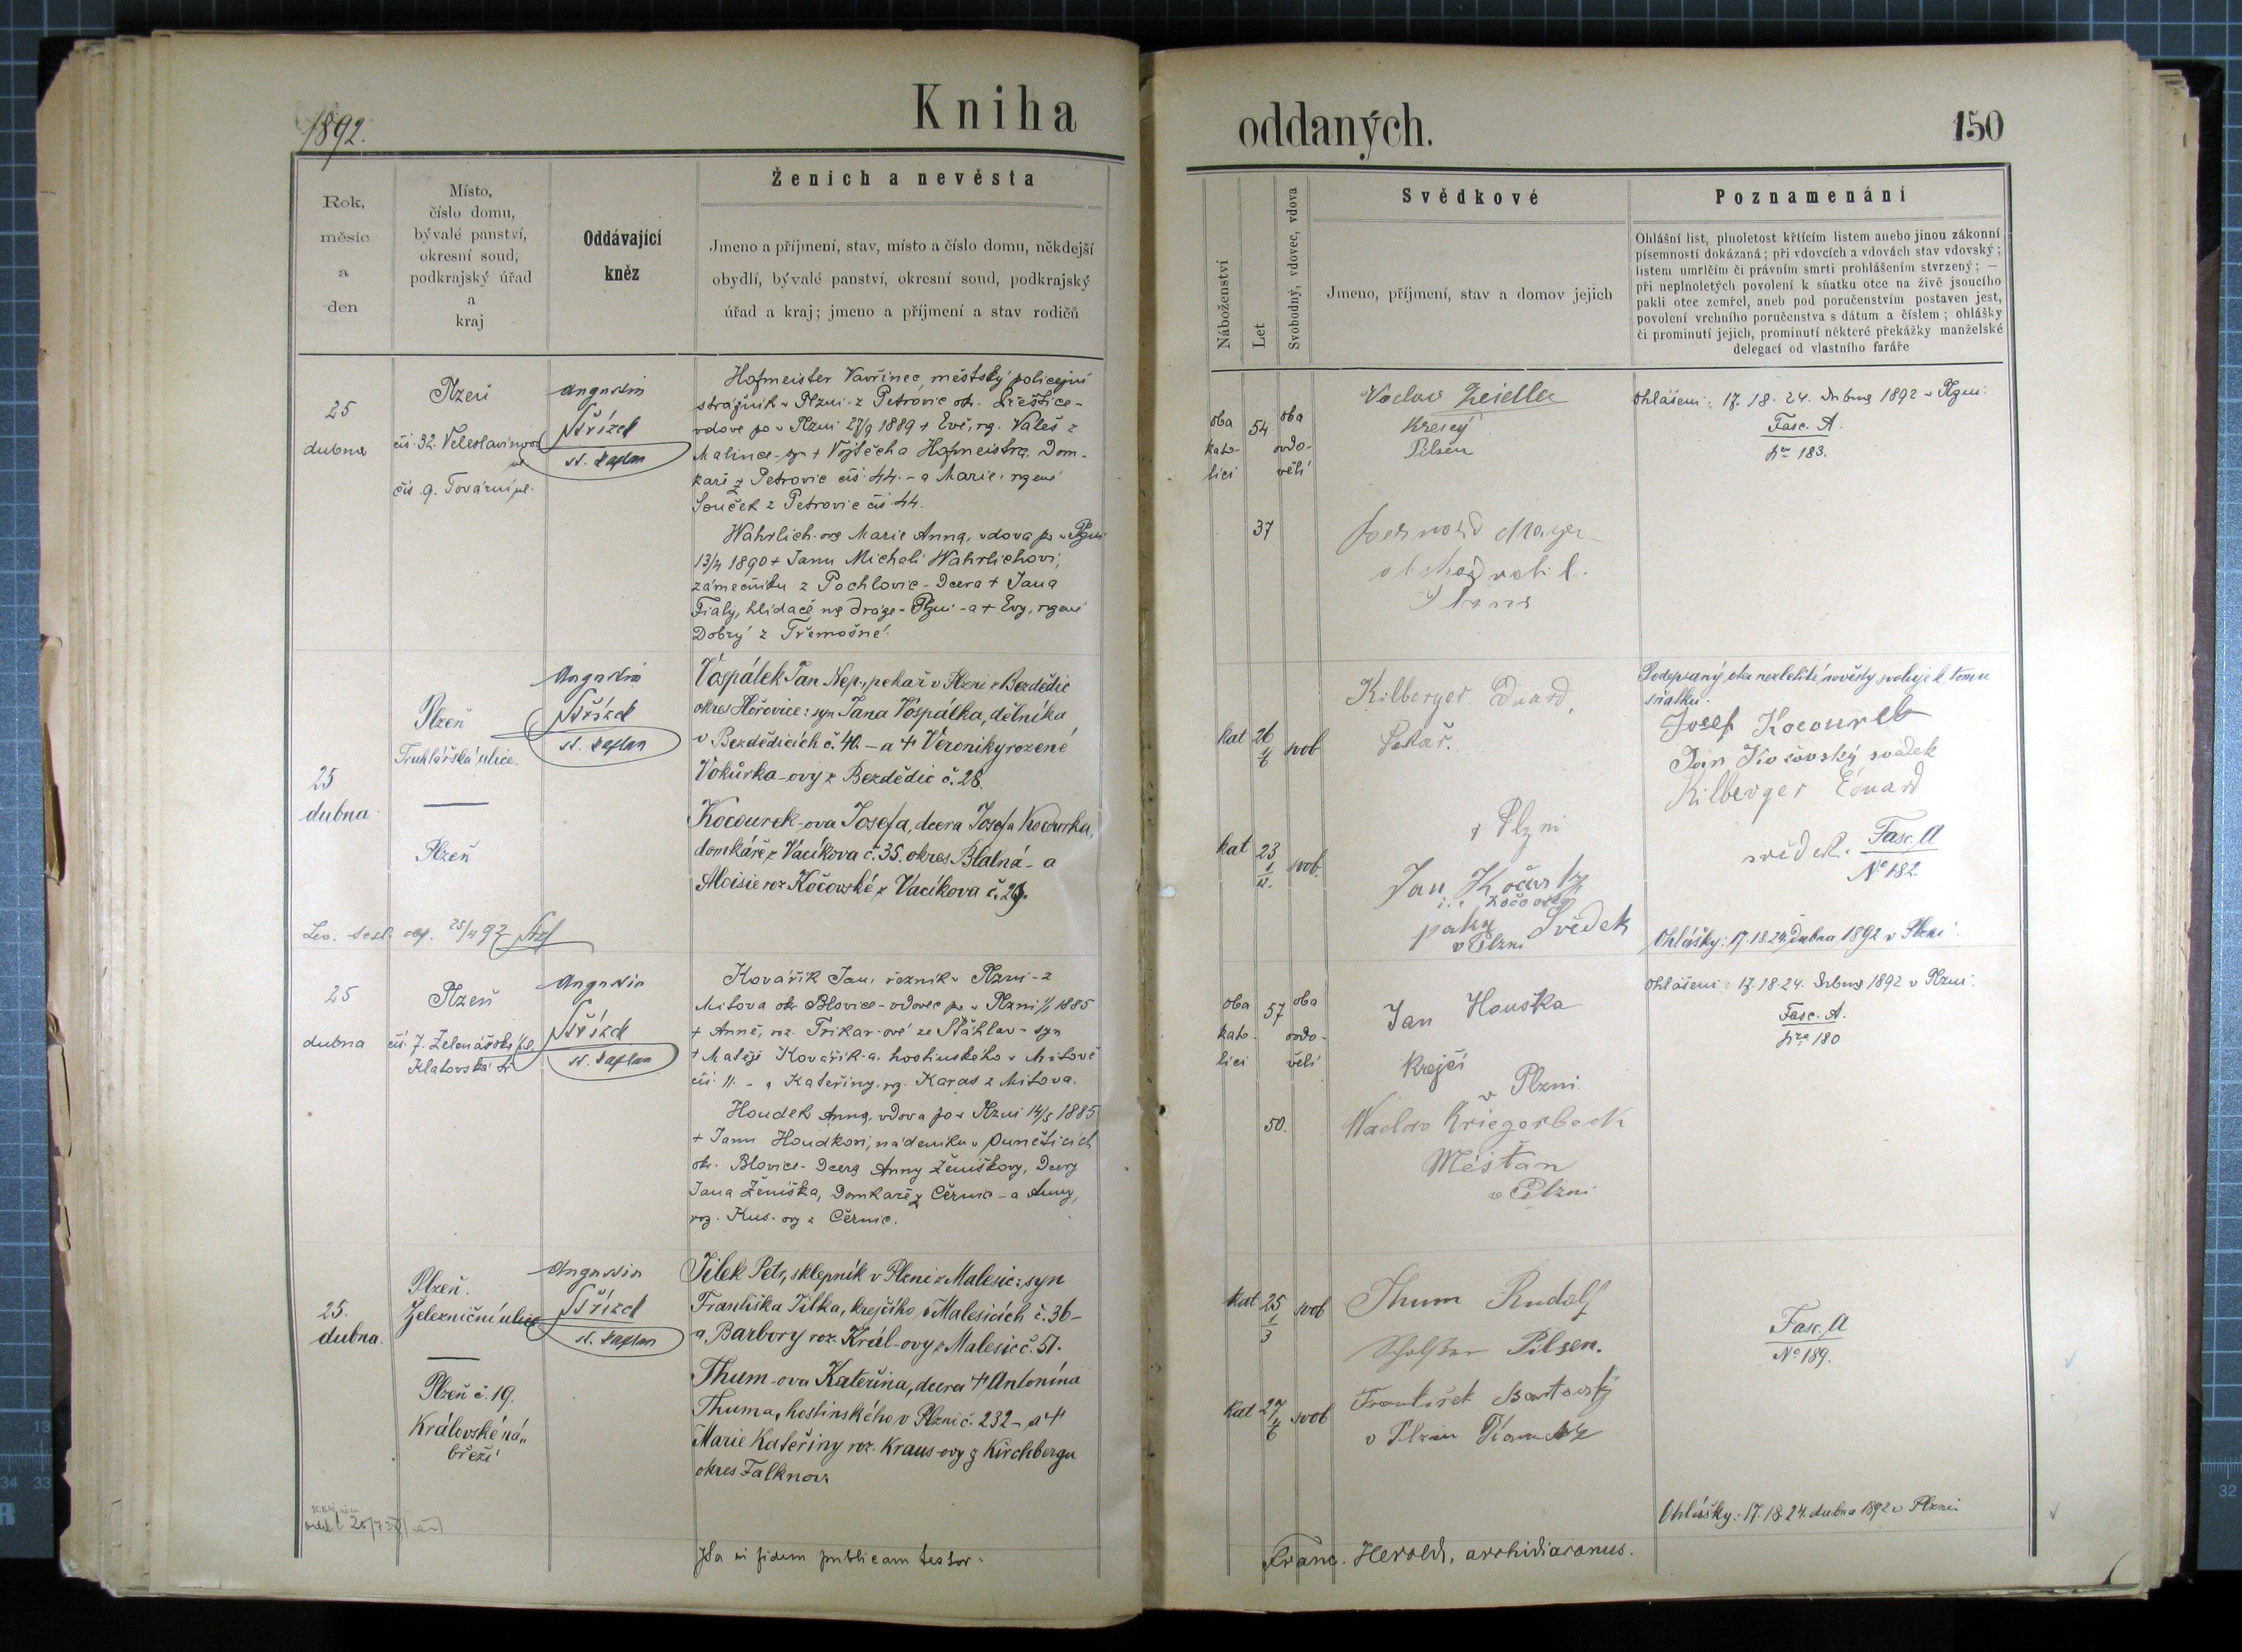 1892.
Kniha
Rok,
měsíc
a
den
Místo,
číslo domu,
bývalé panství,
okresní soud,
podkrajský úřad
a
kraj
Oddávající
kněz
Ženich a nevěsta
Jmeno a příjmení, stav, místo a číslo domu, někdejší
obydlí, bývalé panství, okresní soud, podkrajský
úřad a kraj; jmeno a příjmení a stav rodičů
25
dubna
Plzeň
čís. 32. Veleslavínova
ul.
čís. 9. Tovární ul.
Augustin
Střízek
st. kaplan
Hofmeister Vavřinec, městský policejní
strážník v Plzni z Petrovic okr. Přeštice-
vdovec po v Plzni 27/9 1889 + Evě, roz. Valeš z
Malinec - syn + Vojtěcha Hofmeistra, Dom-
kaře z Petrovic čís. 44. - a Marie, rozené
Souček z Petrovic čís. 44.
Wahrlich-ova Marie Anna, vdova po v Plzni
13/4 1890 + Janu Michali Wahrlichovi,
zámečníku z Pochlovic - Dcera + Jana
Fialy, hlídače na dráze v Plzni - a + Evy, rozené
Dobrý z Třemošné.
25
dubna
Plzeň
Truhlářská ulice.
Plzeň
Augustin
Střízek
st. kaplan
Vospálek Jan Nep., pekař v Plzni z Bezdědic
okres Hořovice: syn Jana Vospálka, dělníka
v Bezdědicích č. 40. - a + Veroniky rozené
Vokůrka-ovy z Bezdědic č. 28.
Kocourek-ova Josefa, dcera Josefa Kocourka,
domkáře z Vacíkova č. 35. okres Blatná - a
Aloisie roz. Kočovské z Vacíkova č. 29.
25/4 92
25
dubna
Plzeň
čís. 7. Zelenářská ul.
Klatovská tř.
Augustin
Střízek
st. kaplan
Kovářík Jan, řezník v Plzni - z
Mítova okr. Blovice - vdovec po v Plzni 1885
+ Anně, roz. Trikar-ové ze Šťáhlav - syn
+ Matěje Kovářík-a, hostinského v Mítově
čís. 11. - a Kateřiny, roz. Karas z Mítova.
Houdek Anna, vdova po v Plzni 14/5 1885
+ Janu Houdkovi, nádeníku v Puněticích
okr. Blovice - Dcera Anny Ženíškovy, Dcery
Jana Ženíška, Domkaře z Černic - a Anny,
roz. Kus-ovy z Černic.
25.
dubna.
Plzeň.
Železniční ulice
Plzeň č. 19.
Královské ná„
břeží
Augustin
Střízek
st. kaplan
Jílek Petr, sklepník v Plzni z Malesic: syn
Františka Jílka, krejčího v Malesicích č. 36 -
a Barbory roz. Král-ovy z Malesic č. 51.
Thum-ova Kateřina, dcera + Antonína
Thuma, hostinského v Plzni č. 232 - a +
Marie Kateřiny roz. Kraus-ovy z Kirchbergu
okres Falknov
Ita in fidem publicam testor.
oddaných.
150
Náboženství
Let
Svobodný, vdovec, vdova
Svědkové
Jmeno, příjmení, stav a domov jejich
Poznamenání
Ohlášní list, plnoletost křtícím listem anebo jinou zákonní
písemností dokázaná; při vdovcích a vdovách stav vdovský;
listem umrlčím či právním smrti prohlášením stvrzený; —
při neplnoletých povolení k sňatku otce na živě jsoucího
pakli otec zemřel, aneb pod poručenstvím postaven jest,
povolení vrchního poručenstva s dátum a číslem; ohlášky
či prominutí jejich, prominutí některé překážky manželské
delegací od vlastního faráře
oba
kato-
líci
54
oba
ovdo-
věli
37
Václav Zeidler
Krejčí
Pilsen
Bernard Mayer
Ohlášeni: 17. 18. 24. dubna 1892 v Plzni.
Fasc. A.
Nro 183.
kat 26 4/6 svob
Kilberger Eduard,
Pekař.
v Plzni
kat 23 1/4 svob.
Jan Kočovský
Kočovský
v Plzni
Svědek
Podepsaný otec nezletilé nevěsty svoluje k tomu
sňatku.
Josef Kocourek
Jan Kočovský svědek
Kilberger Eduard
svědek.
Fasc. A
No 182
Ohlášky: 17. 18. 24. dubna 1892 v Plzni.
oba
kato-
líci
57
oba
ovdo-
věli
50.
Jan Houška
Krejčí
v Plzni
Waclav Kriegerbeck
Měšťan
v Plzni
Ohlášeni: 17. 18. 24. dubna 1892 v Plzni.
Fasc. A.
Nro 180
kat 25 1/3 svob
Thum Rudolf
Pilsen.
kat 27 4/6 svob
František Bartovský
v Plzni
Fasc. A
No 189.
Ohlášky: 17. 18. 24. dubna 1892 v Plzni
Franc. Herold, archidiaconus.